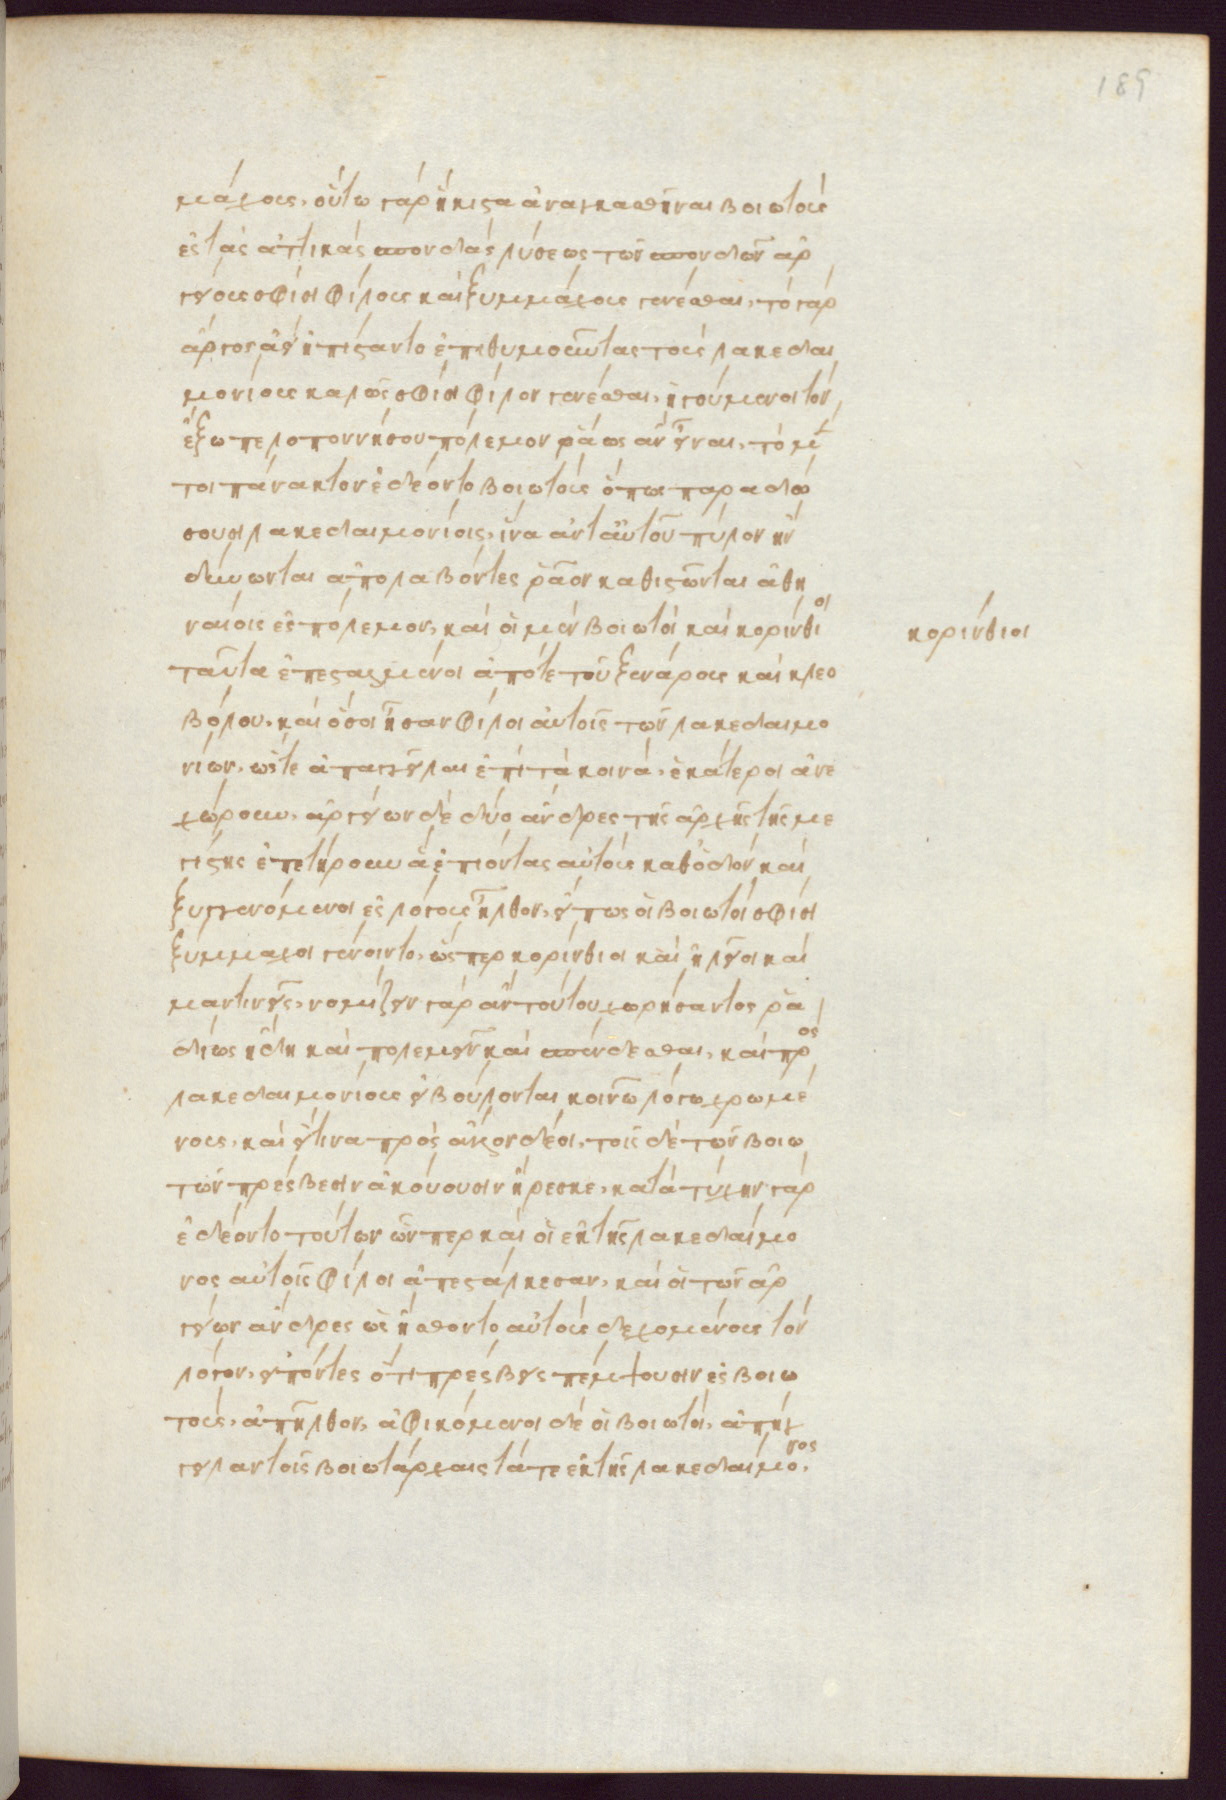 189
μάχους, οὕτω γὰρ ἥκιστα ἀναγκασθῆναι βοιωτοὺς
ἐς τὰς ἀττικὰς σπονδὰς λύσεως τῶν σπονδῶν ἀρ
γείους σφίσι φίλους καὶ ξυμμάχους γενέσθαι, τὸ γὰρ
ἄργος ἀεὶ ἠπίσταντο ἐπιθυμοῦντας τοὺς λακεδαι
μονίους καλῶς σφίσι φίλον γενέσθαι, ἡγούμενοι τὸν
ἔξω πελοποννήσου πόλεμον ῥάως ἂν εἶναι, τὸ μέν
τοι πάνακτον ἐδέοντο βοιωτοὺς ὅπως παραδώ
σουσι λακεδαιμονίοις, ἵνα ἀντ αὐτοῦ πύλον ἢν
δύνωνται ἀπολαβόντες ῥᾶον καθιστῶνται ἀθη
ναίοις ἐς πόλεμον, καὶ οἱ μὲν βοιωτοὶ καὶ κορίνθιοι
κορίνθιοι
ταῦτα ἐπεσταλμένοι ἀπό τε τοῦ ξενάρους καὶ κλεο
βόλου, καὶ ὅσοι ἦσαν φίλοι αὐτοῖς τῶν λακεδαιμο
νίων, ὥστε ἀπαγγεῖλαι ἐπὶ τὰ κοινὰ, ἑκάτεροι ἀνε
χώρουν, ἀργείων δὲ δύο ἄνδρες τῆς ἀρχῆς τῆς με
γίστης ἐπετήρουν ἀπιόντας αὐτοὺς καθ ὁδὸν καὶ
ξυγγενόμενοι ἐς λόγους ἦλθον, εἴ πως οἱ βοιωτοὶ σφίσι
ξύμμαχοι γένοιντο, ὥσπερ κορίνθιοι καὶ ἠλεῖοι καὶ
μαντινεῖς, νομίζειν γὰρ ἂν τούτου χωρήσαντος ῥᾳ
δίως ἤδη καὶ πολεμεῖν καὶ σπένδεσθαι, καὶ πρὸς
λακεδαιμονίους εἰ βούλονται κοινῷ λόγῳ χρωμέ
νους, καὶ εἴ τινα πρὸς ἄλλον δέοι, τοῖς δὲ τῶν βοιω
τῶν πρέσβεσιν ἀκούουσιν ἤρεσκε, κατὰ τύχην γὰρ
ἐδέοντο τούτων ὧνπερ καὶ οἱ ἐκ τῆς λακεδαίμο
νος αὐτοῖς φίλοι ἀπεστάλκεσαν, καὶ οἱ τῶν ἀρ
γείων ἄνδρες ὡς ᾔσθοντο αὐτοὺς δεχομένους τὸν
λόγον, εἰπόντες ὅτι πρέσβεις πέμψουσιν ἐς βοιω
τοὺς, ἀπῆλθον, ἀφικόμενοι δὲ οἱ βοιωτοὶ, ἀπήγ
γειλαν τοῖς βοιωτάρχαις τά τε ἐκ τῆς λακεδαίμονος,